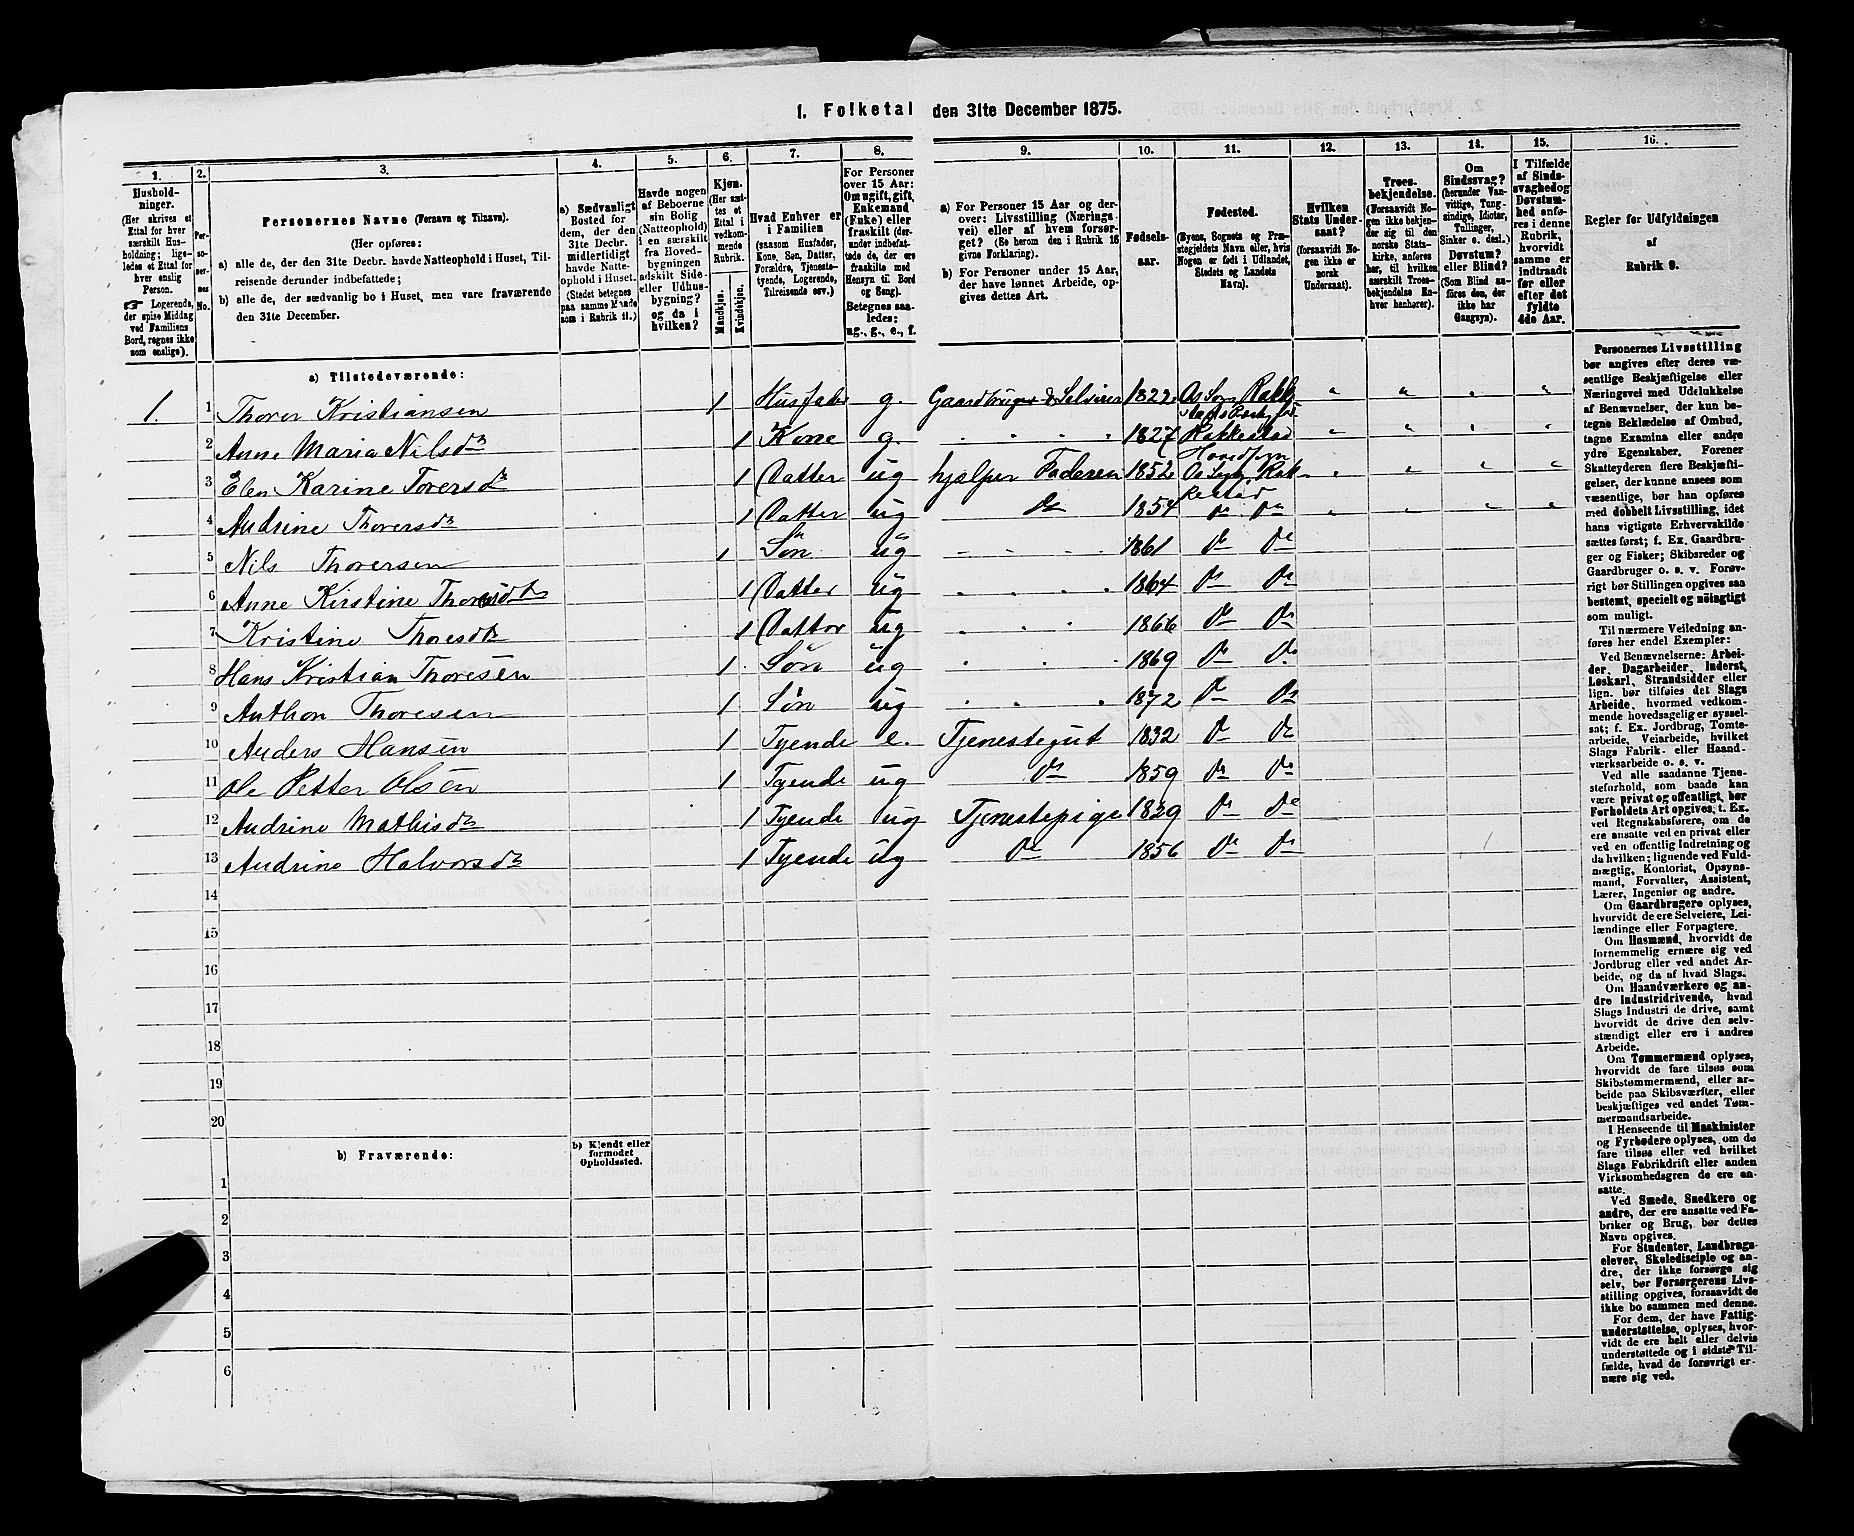 1. Folketal den 31te December 1875.
1.
Hushold-
ninger.
(Her skrives et
Ettal for hver
særskilt Hus-
holdning; lige-
ledes et Ettal for
hver enslig
Person.
☛ Logerende,
der spise Middag
ved Familiens
Bord, regnes ikke
som enslige).
2.
Per-
so-
ner-
nes
No.
3.
Personernes Navne (Fornavn og Tilnavn).
(Her opføres:
a) alle de, der den 31te Decbr. havde Natteophold i Huset, Til-
reisende derunder indbefattede;
b) alle de, der sædvanlig bo i Huset, men vare fraværende
den 31te December.
4.
a) Sædvanligt
Bosted for
dem, der den
31te Decbr.
midlertidigt
havde Natte-
ophold i Huset.
(Stedet betegnes
paa samme Maade
som i Rubrik 11.)
5.
Havde nogen
af Beboerne
sin Bolig
(Natteophold)
i en særskilt
fra Hoved-
bygningen
adskilt Side-
eller Udhus-
bygning?
og da i
hvilken?
6.
Kjøn.
(Her sæt-
tes et
Ettal i
vedkom-
mende
Rubrik.
Mandkjøn.
Kvindekjøn.
7.
Hvad Enhver er
i Familien
(saasom Husfader,
Kone, Søn, Datter,
Forældre, Tjeneste-
tyende, Logerende,
Tilreisende osv.)
8.
For Personer
over 15 Aar:
Om ugift, gift,
Enkemand
(Enke) eller
fraskilt (der-
under indbefat-
tede de, der ere
fraskilte med
Hensyn til Bord
og Seng).
Betegnes saa-
ledes:
ug., g., e., f.
9.
a) For Personer 15 Aar og der-
over: Livsstilling (Nærings-
vei) eller af hvem forsør-
get? (Se herom den i Rubrik 16
givne Forklaring).
b) For Personer under 15 Aar,
der have lønnet Arbeide, op-
gives dettes Art.
10.
Fødsels-
aar.
11.
Fødested.
(Byens, Sognets og Præ-
stegjeldets Navn eller, hvis
Nogen er født i Udlandet,
Stedets og Landets
Navn).
12.
Hvilken
Stats Under-
saat?
(forsaavidt No-
gen ikke er
norsk
Undersaat).
13.
Troes-
bekjendelse.
(Forsaavidt No-
gen ikke bekjen-
der sig til den
norske Stats-
kirke, anføres
her, til hvilken
særskilt Troes-
bekjendelse En-
hver henhører).
14.
Om
Sindssvag?
(herunder Van-
vittige, Tung-
sindige, Idioter,
Tullinger,
Sinker o. desl.)
Døvstum?
eller Blind?
(Som Blind an-
føres den, der
ikke har
Gangsyn).
15.
I Tilfælde
af Sinds-
svaghed og
Døvstum-
hed anfø-
res i denne
Rubrik,
hvorvidt
samme er
indtraadt
før eller
efter det
fyldte
4de Aar.
16.
Regler for Udfyldningen
af
Rubrik 9.
a) Tilstedeværende:
1. 1 Thorer Kristiansen 1 Husfader g. Gaardbruger & Selveier 1822 Os Sogn Rakke-
2 Anne Maria Nilsdtr 1 Kone g. 1827 Rakkestad
Hovedsogn
3 Elen Karine Torersdtr 1 Datter ug hjelper Faderen 1852 Os Sogn Rak-
kestad
4 Andrine Thorersdtr 1 Datter ug Do 1854 Do Do
5 Nils Thorersen 1 Søn ug 1861 Do Do
6 Anne Kirstine Thoresdtr 1 Datter ug 1864 Do Do
7 Kristine Thoresdtr 1 Datter ug 1866 Do Do
8 Hans Kristian Thoresen 1 Søn ug 1869 Do Do
9 Anthon Thoresen 1 Søn ug 1872 Do Do
10 Anders Hansen 1 Tyende e. Tjenestegut 1832 Do Do
11 Ole Petter Olsen 1 Tyende ug Do 1859 Do Do
12 Andrine Mathisdtr 1 Tyende ug Tjenestepige 1829 Do Do
13 Andrine Halvorsdtr 1 Tyende ug Do 1856 Do Do
14
15
16
17
18
19
20
b) Fraværende:
b) Kjendt eller
formodet
Opholdssted.
1
2
3
4
5
6
Personernes Livsstilling
bør angives efter deres væ-
sentlige Beskjæftigelse eller
Næringsvei med Udelukkelse
af Benævnelser, der kun be-
tegne Beklædelse af Ombud,
tagne Examina eller andre
ydre Egenskaber. Forener
Skatteyderen flere Beskjæfti-
gelser, der kunne ansees som
væsentlige, bør han opføres
med dobbelt Livsstilling, idet
hans vigtigste Erhvervskilde
sættes først; f. Ex. Gaardbru-
ger og Fisker; Skibsreder og
Gaardbruger o. s. v. Forøv-
rigt bør Stillingen opgives saa
bestemt, specielt og nøiagtigt
som muligt.
Til nærmere Veiledning an-
føres her endel Exempler:
Ved Benævnelserne: Arbei-
der, Dagarbeider, Inderst,
Løskarl, Strandsidder eller
lign. bør tilføies det Slags
Arbeide, hvormed vedkom-
mende hovedsagelig er syssel-
sat; f. Ex. Jordbrug, Tomte-
arbeide, Veiarbeide, hvilket
Slags Fabrik- eller Haand-
værksarbeide o. s. v.
Ved alle saadanne Tjene-
steforhold, som baade kan
være privat og offentligt, bør
Forholdets Art opgives, t. Ex.
ved Regnskabsførere, om de
ere ansatte ved en privat eller
ved en offentlig Indretning og
da hvilken; lignende ved Fuld-
mægtig, Kontorist, Opsyns-
mand, Forvalter, Assistent,
Lærer, Ingeniør og andre.
Om Gaardbrugere oplyses,
hvorvidt de ere Selveiere, Lei-
lændinge eller Forpagtere.
Om Husmænd, hvorvidt de
fornemmelig ernære sig ved
Jordbrug eller ved andet Ar-
beide, og da af hvad Slags.
Om Haandværkere og an-
dre Industridrivende, hvad
Slags Industri de drive, samt
hvorvidt de drive den selv-
stændigt eller ere i andres
Arbeide.
Om Tømmermænd oplyses,
hvorvidt de fare tilsøs som
Skibstømmermænd, eller ar-
beide paa Skibsværfter, eller
beskjæftiges ved andet Tøm-
mermandsarbeide.
I Henseende til Maskinister
og Fyrbødere oplyses, om de
fare tilsøs eller ved hvilket
Slags Fabrikdrift eller anden
Virksomhedsgren de ere an-
satte.
Ved Smede, Snedkere og
andre, der ere ansatte ved Fa-
briker og Brug, bør dettes
Navn opgives.
For Studenter, Landbrugs-
elever, Skoledisciple og an-
dre, der ikke forsørge sig
selv, bør Forsørgerens Livs-
stilling opgives, forsaavidt de
ikke bo sammen med denne.
For dem, der have Fattig-
understøttelse, oplyses, hvor-
vidt de ere helt eller delvis
understøttede og i sidste Til-
fælde, hvad de forøvrigt er-
nære sig ved.